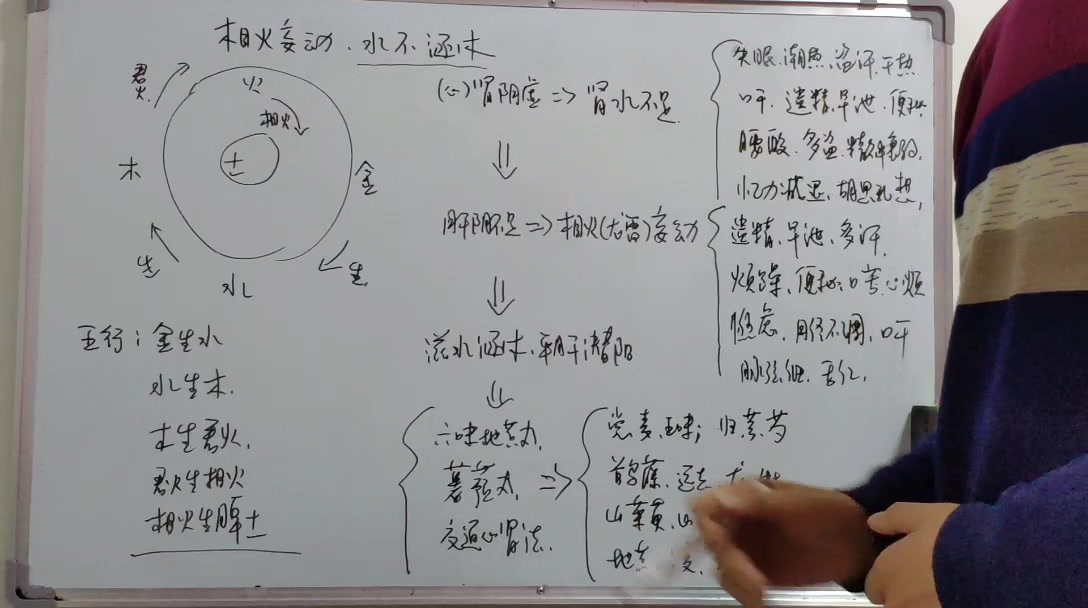 相火妄动、水不涵木
君火
火
相火
土
木
金
生
生
水
五行：金生水
水生木.
木生君火.
君火生相火
相火生脾土
(心)肾阴虚 => 肾水不足
肝阴不足 => 相火(龙雷)妄动
滋水涵木、平肝潜阳
六味地黄丸.
薯蓣丸,
交通心肾法.
失眠.潮热,盗汗.干热
口干.遗精,早泄.便秘.
腰酸.多盗.精神衰弱,
忆力减退,胡思乱想,
遗精.早泄、多汗,
烦躁、便秘、口苦、心烦
焦虑.月经不调,口干
脉弦细.舌红,
党麦五味；归芪芍
首乌藤.远志.龙
山茱萸.山
地黄